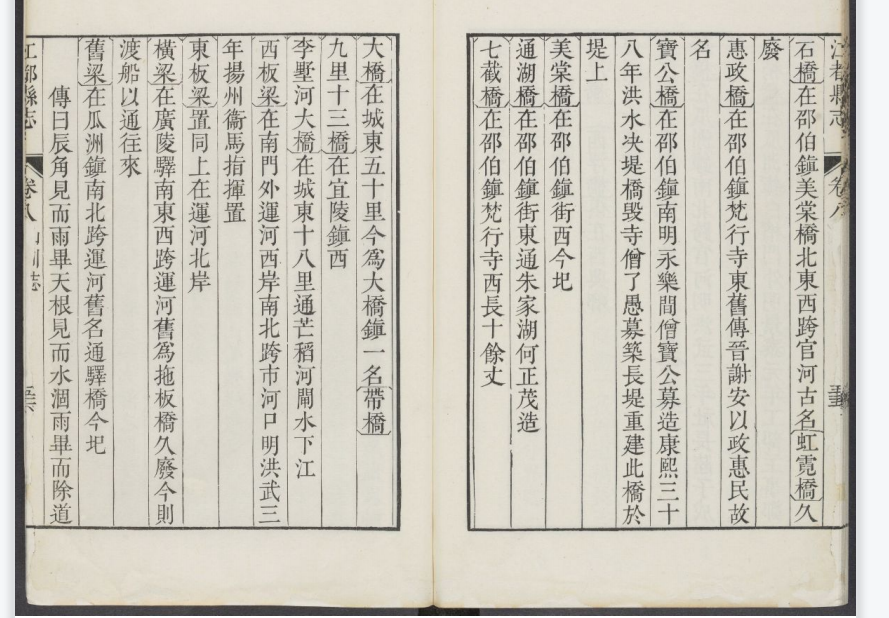 江都縣志
卷八
石橋在邵伯鎮美棠橋北東西跨官河古名虹霓橋久
廢
惠政橋在邵伯鎮梵行寺東舊傳晉謝安以政惠民故
名
寶公橋在邵伯鎮南明永樂間僧寶公募造康熙三十
八年洪水决堤橋毀寺僧了愚募築長堤重建此橋於
堤上
美棠橋在邵伯鎮街西今圯
通湖橋在邵伯鎮街東通朱家湖何正茂造
七截橋在邵伯鎮梵行寺西長十餘丈
大橋在城東五十里今爲大橋鎮一名帶橋
九里十三橋在宜陵鎮西
李墅河大橋在城東十八里通芒稻河閘水下江
西板梁在南門外運河西岸南北跨市河口明洪武三
年揚州衞馬指揮置
東板梁置同上在運河北岸
橫梁在廣陵驛南東西跨運河舊爲拖板橋久廢今則
渡船以通往來
舊梁在瓜洲鎮南北跨運河舊名通驛橋今圯
傳曰辰角見而雨畢天根見而水涸雨畢而除道
江都縣志
卷八